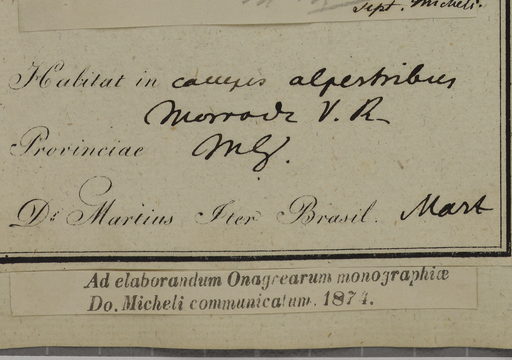 Sept. Micheli.
Habitat in campis alpestribus
Morro de V. R.
Provinciae MG.
Dr. Martius Iter Brasil. Mart
Ad elaborandum Onagrearum monographiæ
Do. Micheli communicatum. 1874.